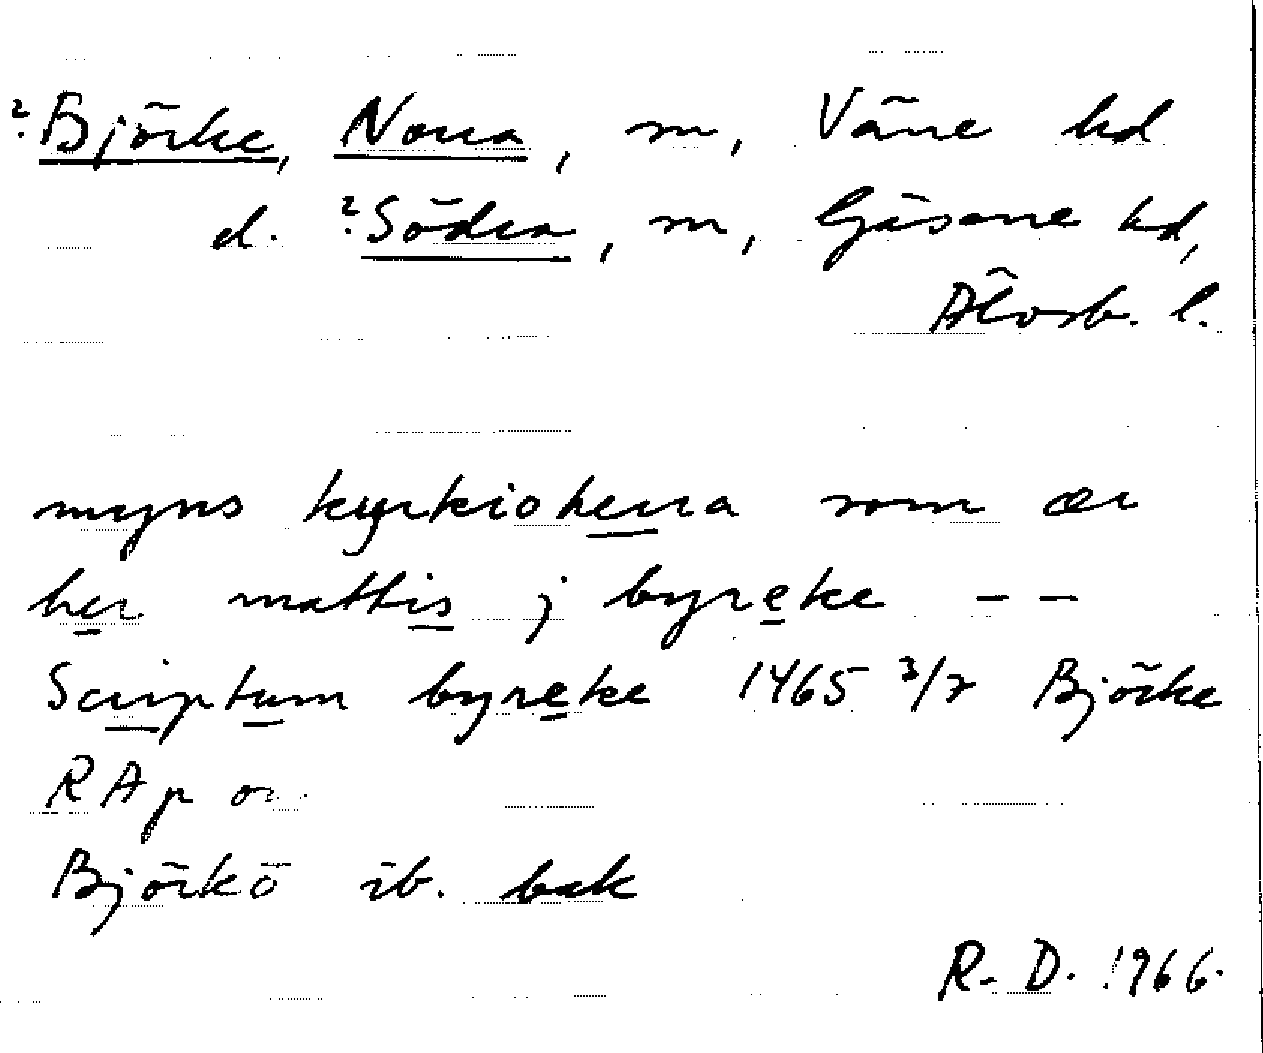 ?Björke, Norra, sn, Väne hd
d. ?Södra, sn, Gäsene hd,
Älvsb. l.
myns kyrkioherra som ær
her mattis j byreke - -
Scriptum byreke 1465 3/2 Björke
RAp or
Björkö ib. bak
R. D. 1966.